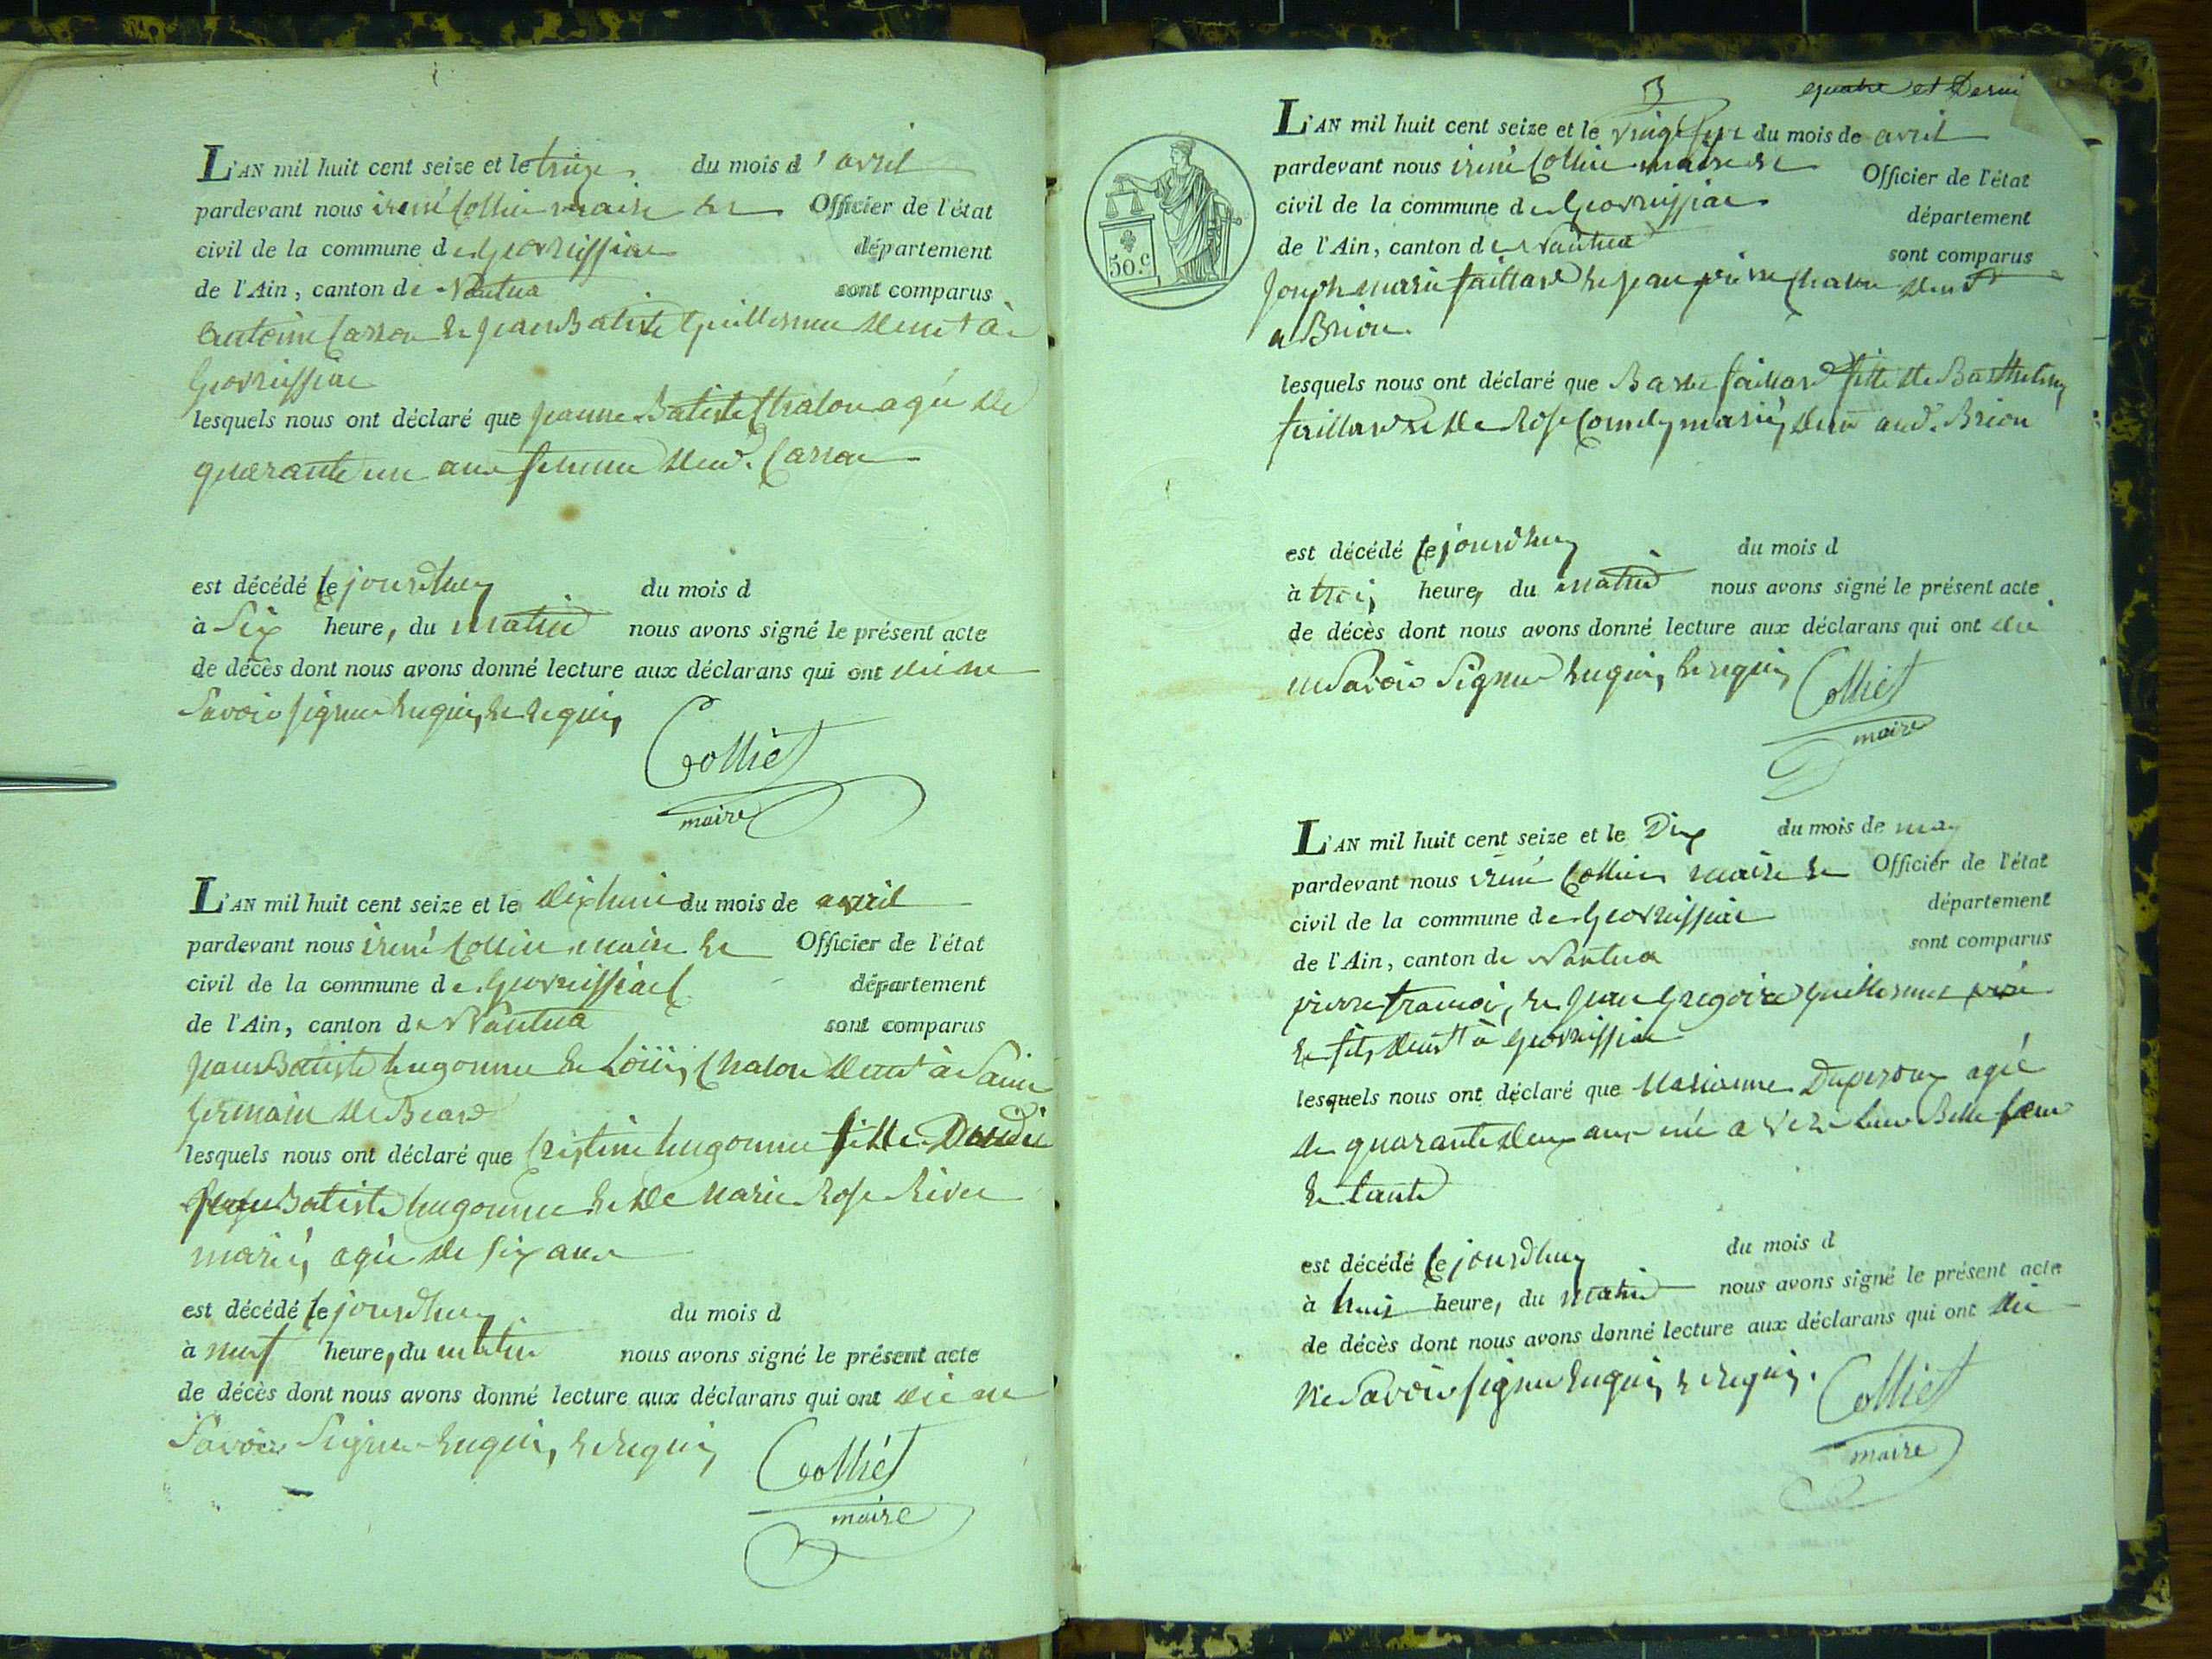 L'AN mil huit cent seize et le treize du mois d'avril
pardevant nous irené Colliet maire et Officier de l'état
civil de la commune de Geovreissiac département
de l'Ain, canton de Nantua sont comparus
antoine Carron et jean Batiste Guillermet demt à
Geovreissiac
lesquels nous ont déclaré que jeanne Batiste Chalon agée de
quarante un ans femme dud. Carron
est décédé le jourdhuy du mois d
à Six heure, du matin nous avons signé le présent acte
de décès dont nous avons donné lecture aux déclarans qui ont dit ne
Savoir signer Enquis, et requis,
Colliet
maire
L'AN mil huit cent seize et le dixhuit du mois de avril
pardevant nous irené Colliet maire et Officier de l'état
civil de la commune de Geovreissiac département
de l'Ain, canton de Nantua sont comparus
jean Batiste hugonnet et Loüis Chalon demt à Saint
germain de Beard
lesquels nous ont déclaré que Cristine hugonnet fille
jean Batiste hugonnet et de Marie Rose
mariés agée de six ans
est décédé le jourdhuy du mois d
à neuf heure, du matin nous avons signé le présent acte
de décès dont nous avons donné lecture aux déclarans qui ont dit ne
Savoir Signer Enquis, et requis
Colliét
maire
3 quatre et Derni
L'AN mil huit cent seize et le vingt du mois de avril
pardevant nous irené Colliet maire et Officier de l'état
civil de la commune de Geovreissiac département
de l'Ain, canton de Nantua sont comparus
50.c
Joseph marie faillard et jean pierre Chalon demt
a Brion.
lesquels nous ont déclaré que Barbe faillard fille de Barthelemy
faillard et de Rose mariés demt aud. Brion
est décédé le jourdhuy du mois d
à trois heures du matin nous avons signé le présent acte
de décès dont nous avons donné lecture aux déclarans qui ont dit
ne Savoir Signer Enquis, et requis
Colliet
maire
L'AN mil huit cent seize et le Dix du mois de may
pardevant nous irené Colliet maire et Officier de l'état
civil de la commune de Geovreissiac département
de l'Ain, canton de Nantua sont comparus
pierre francois, et jean Gregoire Guillermet père
et fils demt à Geovreissiac
lesquels nous ont déclaré que Marianne Duperon agée
de quarante deux ans née a leur Belle soeur
et tante
est décédé le jourdhuy du mois d
à huit heure, du matin nous avons signé le présent acte
de décès dont nous avons donné lecture aux déclarans qui ont dit
ne Savoir signer Enquis, et requis.
Colliet
maire